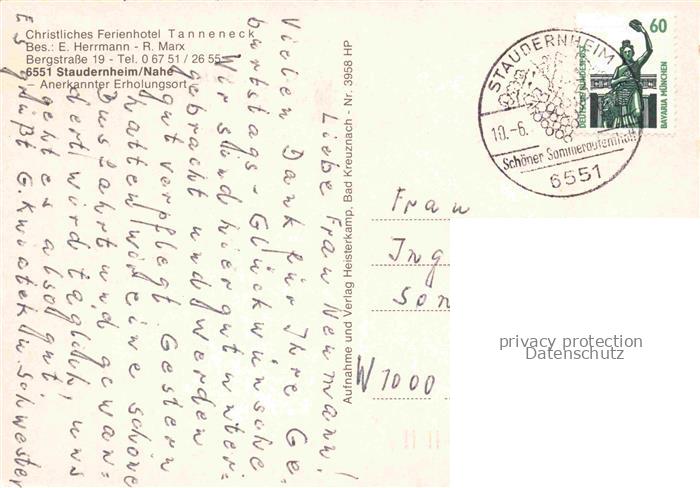 Christliches Ferienhotel Tanneneck
Bes.: E. Herrmann - R. Marx
Bergstraße 19 - Tel. 0 67 51 / 26 55
6551 Staudernheim/Nahe
– Anerkannter Erholungsort –
Liebe Frau Neumann!
Vielen Dank für Ihre Ge-
burtstags-Glückwünsche
Wir sind hier gut unter-
gebracht und werden
gut verpflegt. Gestern
hatten wir eine schöne
Busfahrt und gewan-
dert wird täglich, uns
geht es also gut.
Es grüßt G. Kwiatek u. Schwester
Aufnahme und Verlag Heisterkamp, Bad Kreuznach - Nr. 3958 HP
STAUDERNHEIM
10.-6.
Schöner Sommeraufenthalt
6551
60
DEUTSCHE BUNDESPOST
BAVARIA MÜNCHEN
Frau
Ing
Son
W 1000
privacy protection
Datenschutz